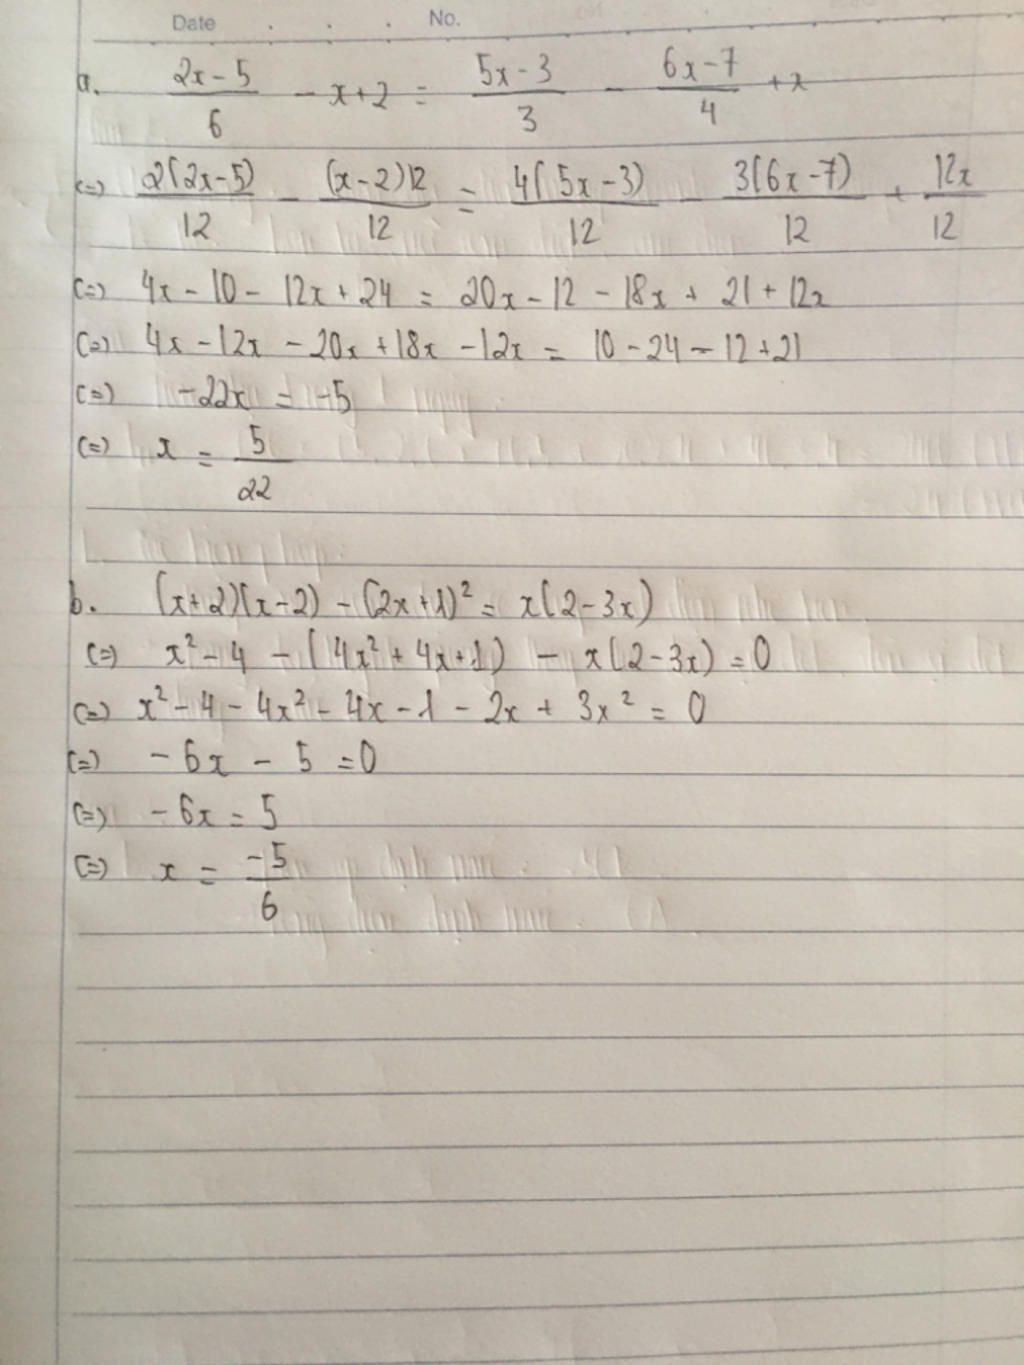 Date . . . No.
a. (2x-5)/6 - x+2 = (5x-3)/3 - (6x-7)/4 + x
(=) 2(2x-5)/12 - (x-2)12/12 = 4(5x-3)/12 - 3(6x-7)/12 + 12x/12
(=) 4x - 10 - 12x + 24 = 20x - 12 - 18x + 21 + 12x
(=) 4x - 12x - 20x + 18x - 12x = 10 - 24 - 12 + 21
(=) -22x = -5
(=) x = 5/22
b. (x+2)(x-2) - (2x+1)² = x(2-3x)
(=) x² - 4 - (4x² + 4x+1) - x(2-3x) = 0
(=) x² - 4 - 4x² - 4x - 1 - 2x + 3x² = 0
(=) -6x - 5 = 0
(=) -6x = 5
(=) x = -5/6